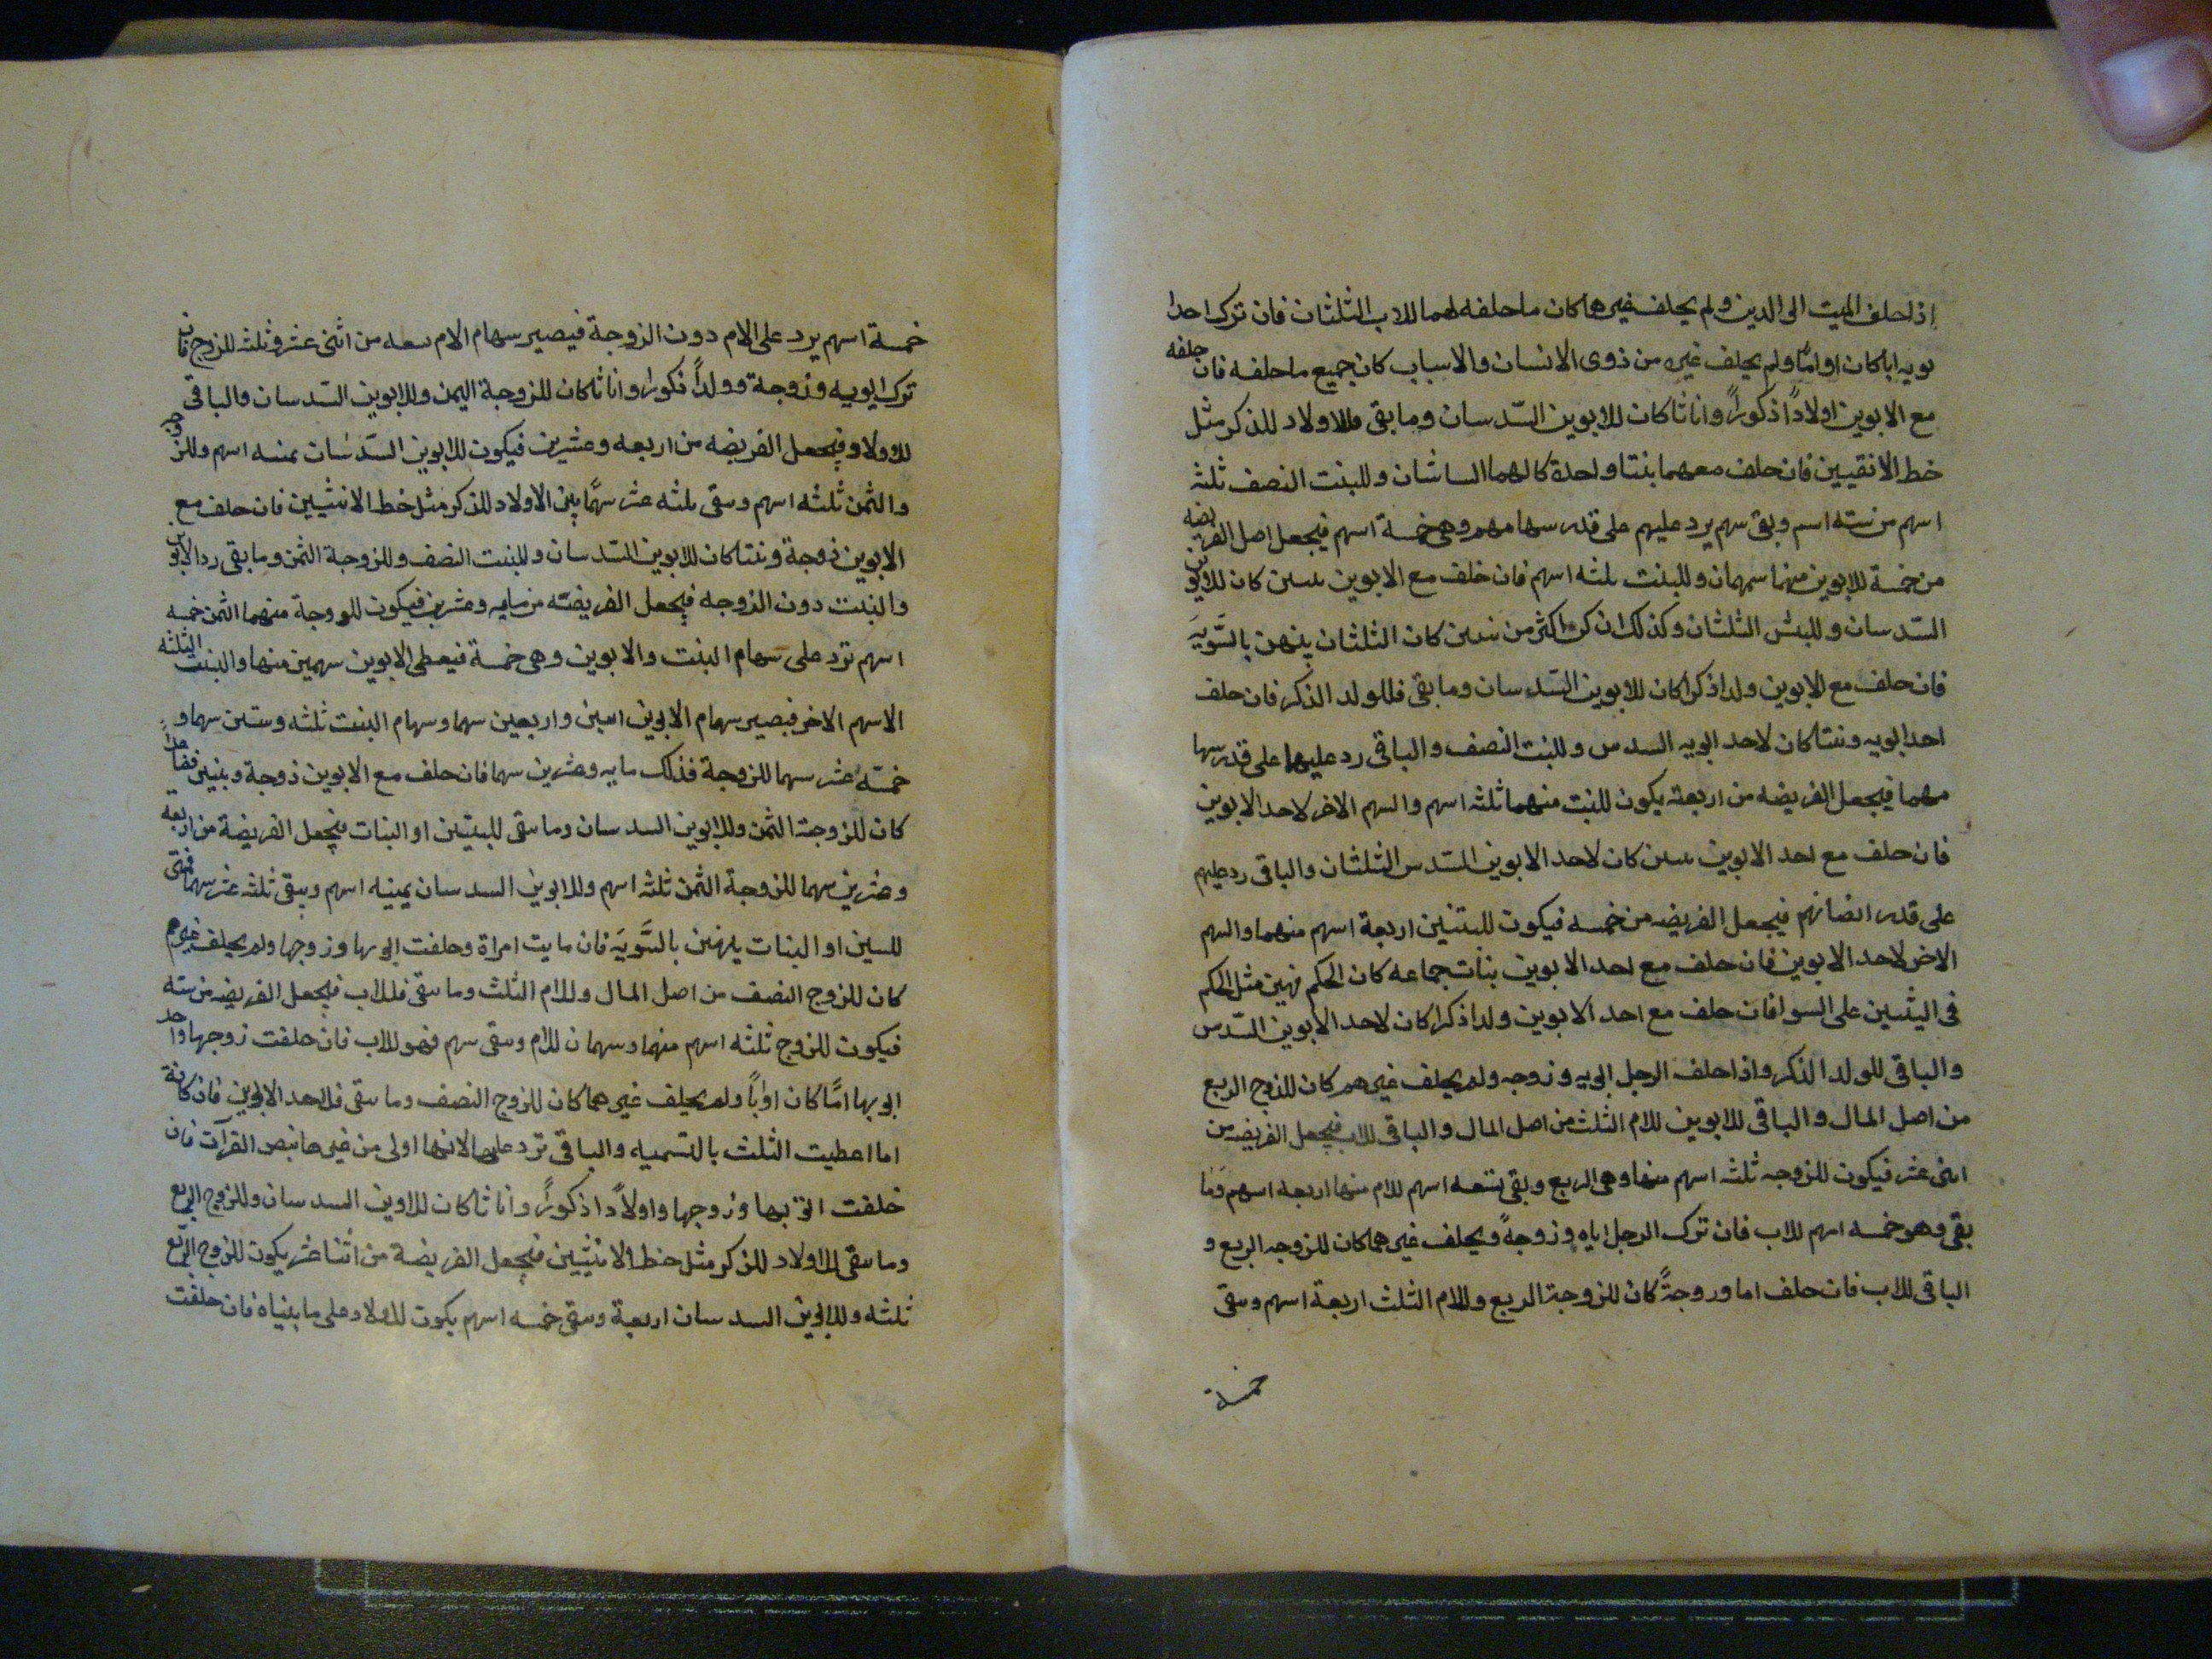 اذا حلف الميت الى الدين ولم يحلف غيرهما كان ما حلفه لهما للاب الثلثان فان ترك احدا
بويه ابا كان او امّا ولم يحلف غيره من ذوى الانساب والاسباب كان جميع ما حلفه فان حلفه
مع الابوين اولادًا ذكورًا واناثا كان للابوين السّدسان وما بقى فللاولاد للذكر مثل
خط الانقيين فان حلف معهما بنتا واحدة كا لهما الساشان وللبنت النصف ثلثه
اسهم من سته اسم وبقى سهم يرد عليهم على قدر سهامهم وهى خمسة اسهم فيجعل اصل الفريضه
من خمسة للابوين منهما سهمان وللبنت ثلثه اسهم فان خلف مع الابوين ستين كان للابوين
السّدسان وللبنتين الثلثان وكذلك ان كن اكثر من بنتين كان الثلثان بنهن بالسَّويَة
فان حلف مع الابوين ولدا ذكرا كان للابوين السّدسان وما بقى فللولد الذكر فان حلف
احد ابويه وبنتا كان لاحد ابويه السدس وللبنت النصف والباقى رد عليهما على قدر سها
مهما فيجعل الفريضه من اربعة يكون للبنت منهما ثلثه اسهم والسهم الاخر لاحد الابوين
فان حلف مع احد الابوين بنتين كان لاحد الابوين السّدس الثلثان والباقى رد عليهم
على قدر انصابهم فيجعل الفريضه من خمسه فيكون للبنتين اربعة اسهم منهما والسهم
الاخر لاحد الابوين فان حلف مع احد الابوين بنات جماعه كان الحكم فهين مثل الحكم
فى البنتين على السوا فان حلف مع احد الابوين ولدا ذكرا كان لاحد الابوين السّدس
والباقى للولد الذكر واذا حلف الرجل ابويه وزوجه ولم يحلف غيرهم كان للزوج الربع
من اصل المال والباقى للابوين للام الثلث من اصل المال والباقى للاب فيجعل الفريضه من
اثنى عشر فيكون للزوجه ثلثه اسهم منها وهى الربع وبقى تسعه اسهم للام منها اربعه اسهم وما
بقى وهو خمسه اسهم للاب فان ترك الرجل اباه وزوجةً ويحلف غيرهما كان للزوجه الربع و
الباقى للاب فان حلف اما وزوجةً كان للزوجة الربع وللام الثلث اربعة اسهم وبقى
خمسة
خمسة اسهم يرد على الام دون الزوجة فيصير سهام الام تسعه من اثنى عشر وثلثه للزوج فان
ترك ابويه وزوجة وولداً ذكورا واناثا كان للزوجة اليمن وللابوين السّدسان والباقى
للاولاد فيجعل الفريضه من اربعه وعشرين فيكون للابوين السّدسان ثمنيه اسهم وللزوج
والثمن ثلثه اسهم وبقى ثلثه عشر سهمًا بين الاولاد للذكر مثل خط الانثيين فان حلف مع
الابوين زوجة وبنتا كان للابوين السّدسان وللبنت النصف وللزوجة الثمن وما بقى رد الابوين
والبنت دون الزوجه فيجعل الفريضته من مايه وعشرين فيكون للزوجة منهما الثمن خمسه
اسهم ترد على سهام البنت والابوين وهى خمسة فيعطى الابوين سهمين منها والبنت الثلثه
الاسهم الاخر فيصير سهام الابوين اثنين واربعين سهما وسهام البنت ثلثه وستين سهما و
خمسّه عشر سهما للزوجة فذلك مايه وعشرين سهما فان حلف مع الابوين زوجة وبنتين فقاعداً
كان للزوجة الثمن وللابوين السدسان وما بقى للبنتين او البنات فيجعل الفريضة من اربعه
وعشرين سهما للزوجة الثمن ثلثه اسهم وللابوين السدسان يمينه اسهم ويبقى ثلثه عشر سهما فبقى
للبنتين او البنات بلهنين بالسَّويَة فان مايت امراة وحلفت ابويها وزوجها ولم يحلف غيرهم
كان للزوج النصف من اصل المال وللام الثلث وما بقى فللاب فيجعل الفريضه من سته
فيكون للزوج ثلثه اسهم منهما وسهمان للام وبقى سهم فهو للاب فان حلفت زوجها واحد
ابويها امًّا كان اوابًا ولم يحلف غيرهما كان للزوج النصف وما بقى فلاحد الابوين فان كانة
اما اعطيت الثلث بالتسميه والباقى ترد عليها لانها اولى من غيرها بنص القرآن فان
خلفت ابويها وزوجها واولاً دا ذكورًا واناثا كان للابوين السدسان وللزوج الربع
وما بقى للاولاد للذكر مثل خط الانثيين فيجعل الفريضة من اثنا عشر يكون للزوج الربع
ثلثه وللابوين السدسان اربعة وبقى خمسه اسهم يكون للاولاد على ما بيناه فان حلفت